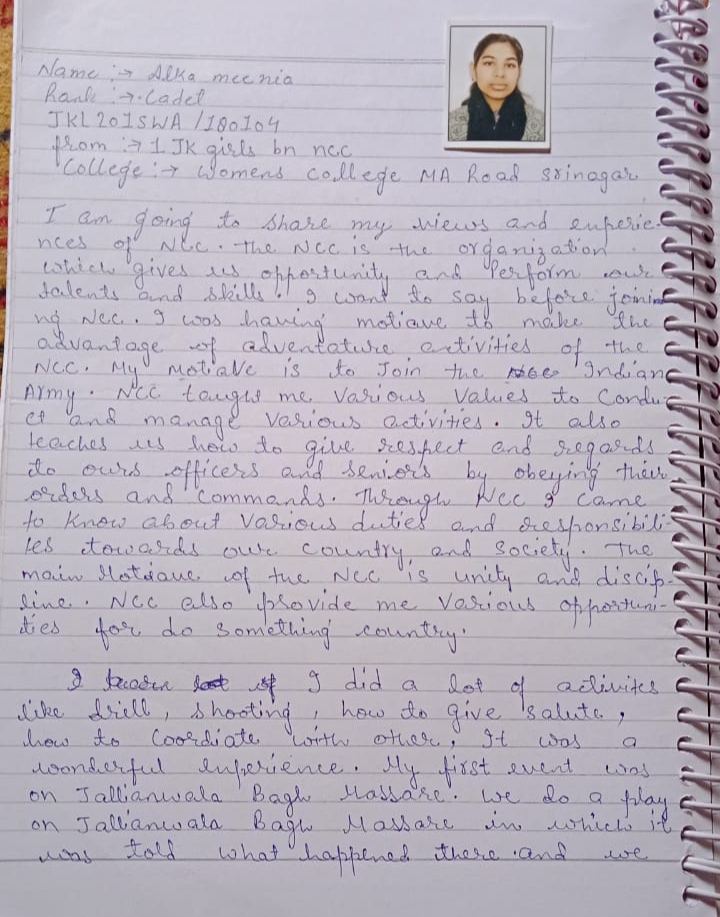 Name :→ Alka meenia
Rank :→ Cadet
JKL201SWA/180104
from :→ 1 JK girls bn ncc
College :→ Womens college MA Road Srinagar
I am going to share my views and experie-
nces of Ncc. the NCC is the organization
which gives us opportunity and Perform our
talents and skills. I want to say before joini
ng Ncc. I was having motiave to make the
advantage of adventature activities of the
NCC. My motiave is to Join the Indian
Army. NCC taught me Various Values to Condu-
ct and manage Various activities. It also
teaches us how to give respect and regards
to ours officers and seniors by obeying their
orders and commands. Through Ncc I came
to Know about Various duties and responsibili-
tes towards our country, and Society. The
main Motiave of the NCC is unity and discip-
line. NCC also provide me Various opportuni-
ties for do something country.
I learn lot of I did a lot of activites
like drill, shooting, how to give salute,
how to Coordiate with other, It was a
wonderful experience. My first event was
on Jallianwala Bagh Massare. we do a play
on Jallianwala Bagh Massare in which it
was told what happened there and we